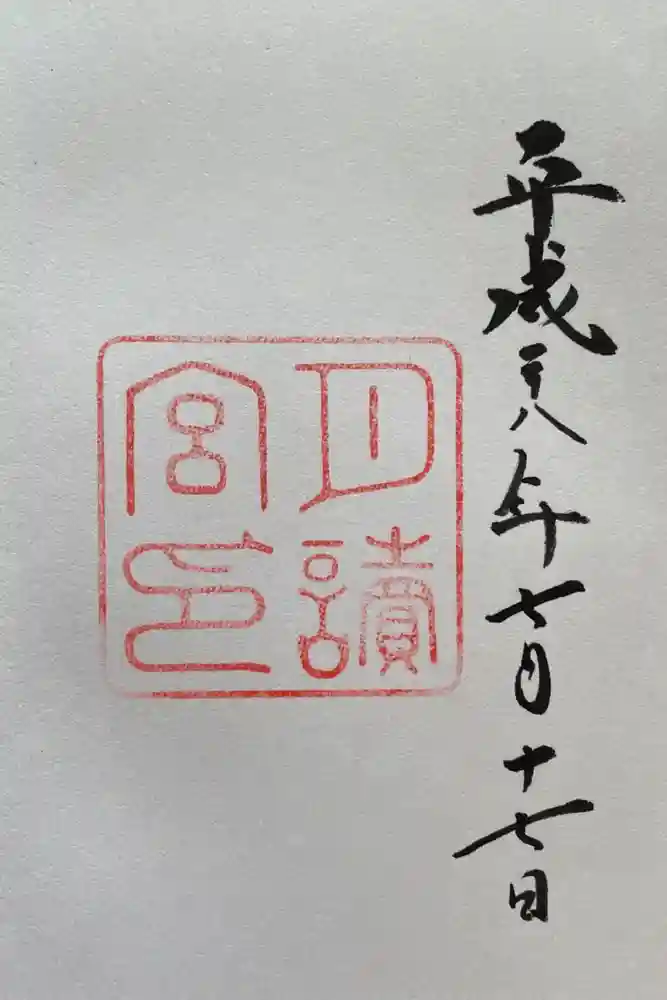 平成二十八年七月十七日
月讀
宮印